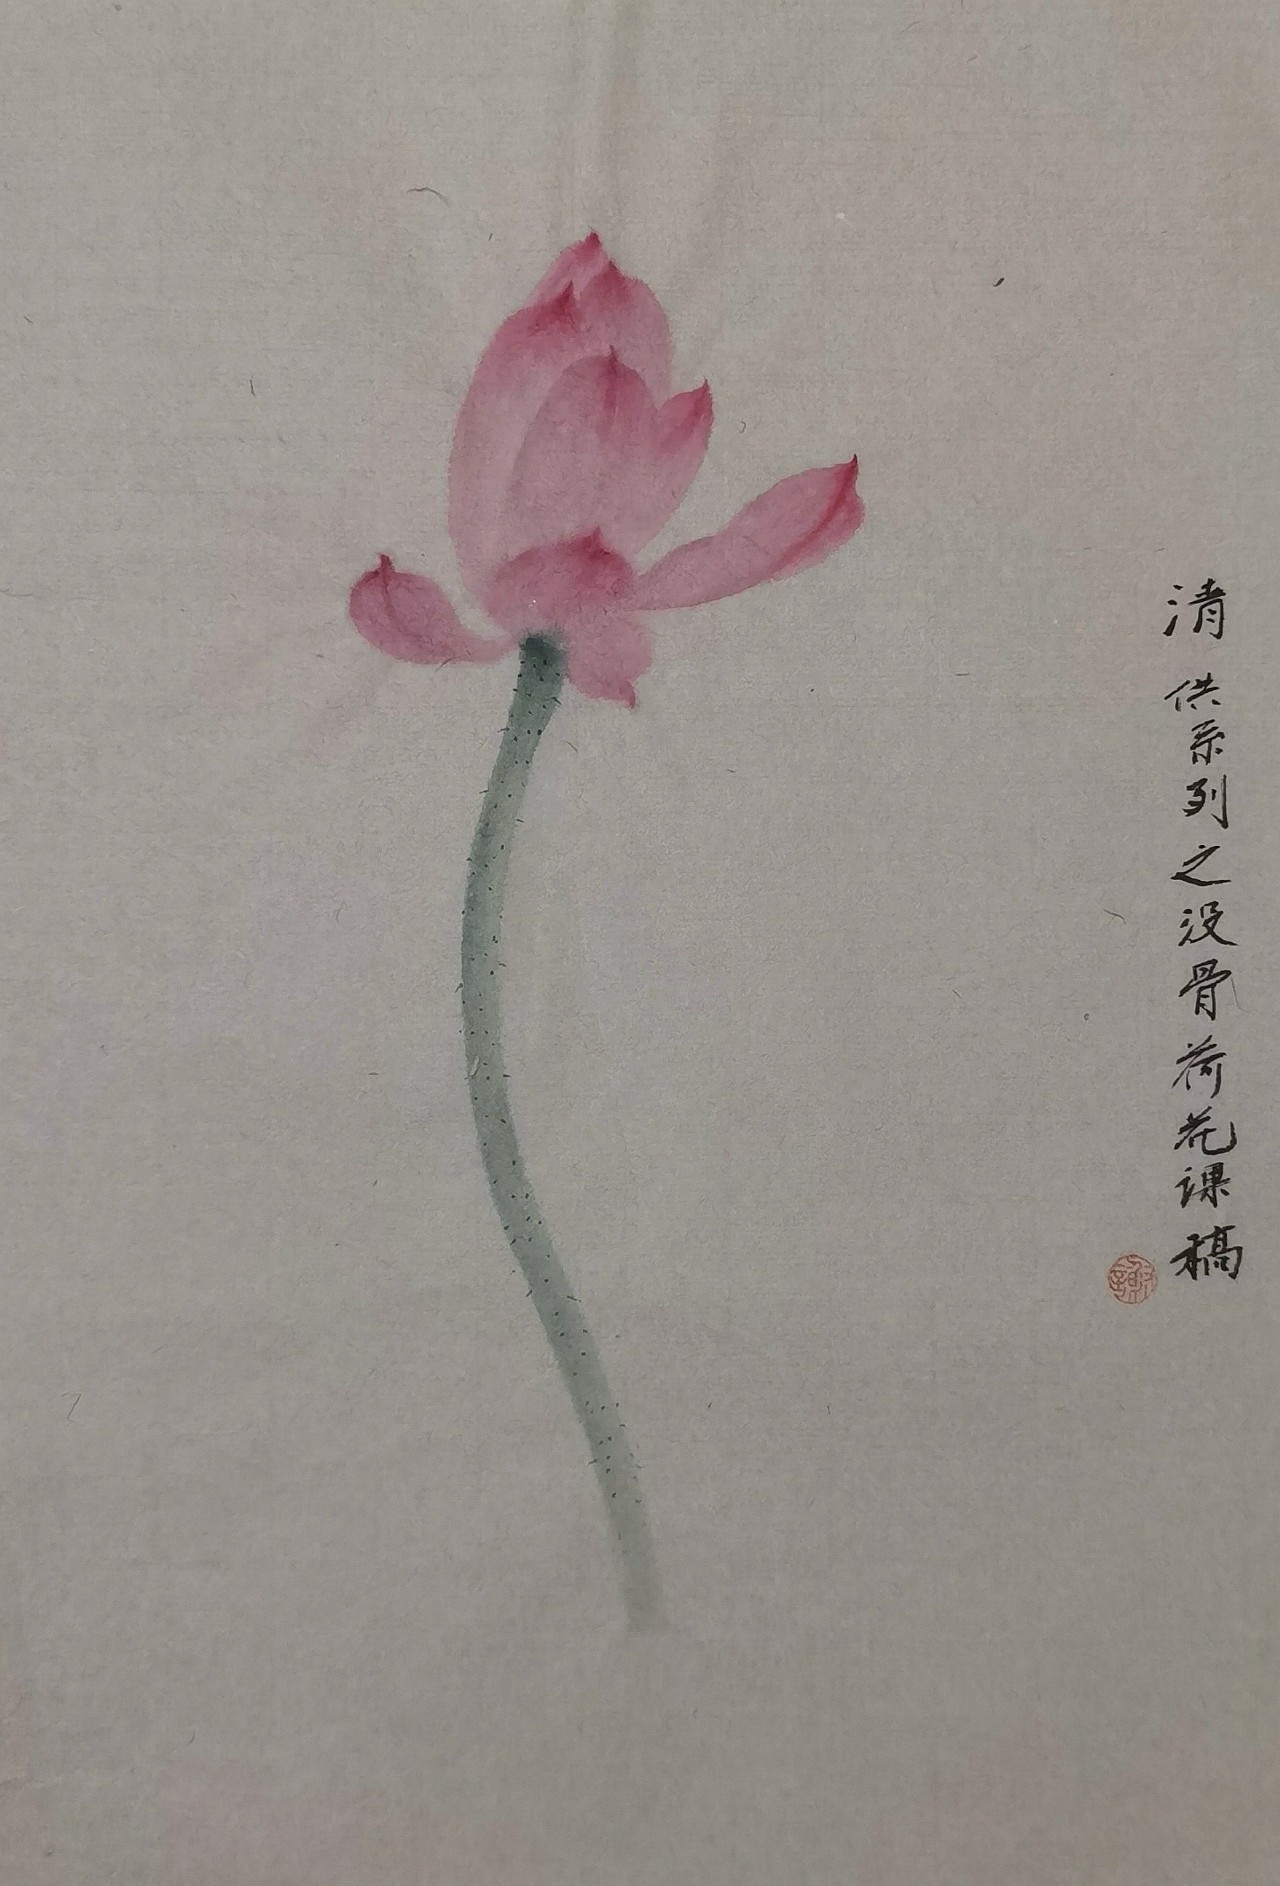 清供系列之没骨荷花课稿